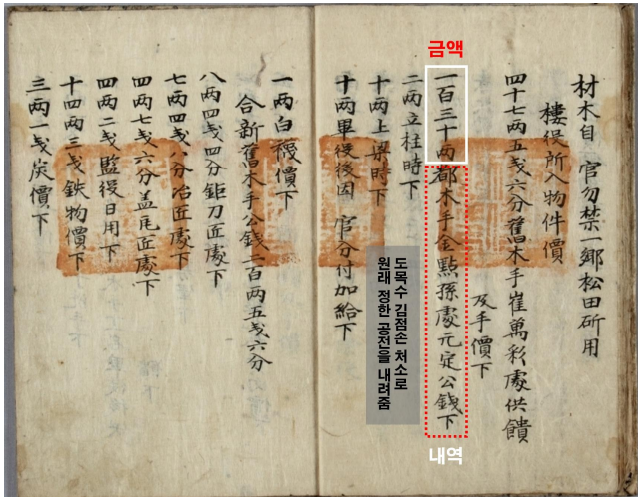 材木自 官勿禁一鄕松田斫用
樓役所入物件價
四十七両五戔六分舊木手崔萬彩處供饋
及手價下
금액
一百三十両都木手金點孫處元定公錢下
내역
도목수 김점손 처소로
원래 정한 공전을 내려줌
二両立柱時下
十両上樑時下
十両畢役後因 官分付加給下
一両白襪價下
合新舊木手公錢二百両五戔六分
八両四戔四分鉅刀匠處下
七両四戔八分冶匠處下
四両七戔六分盖瓦匠處下
四両二戔監役日用下
十四両三戔鉄物價下
三両一戔炭價下